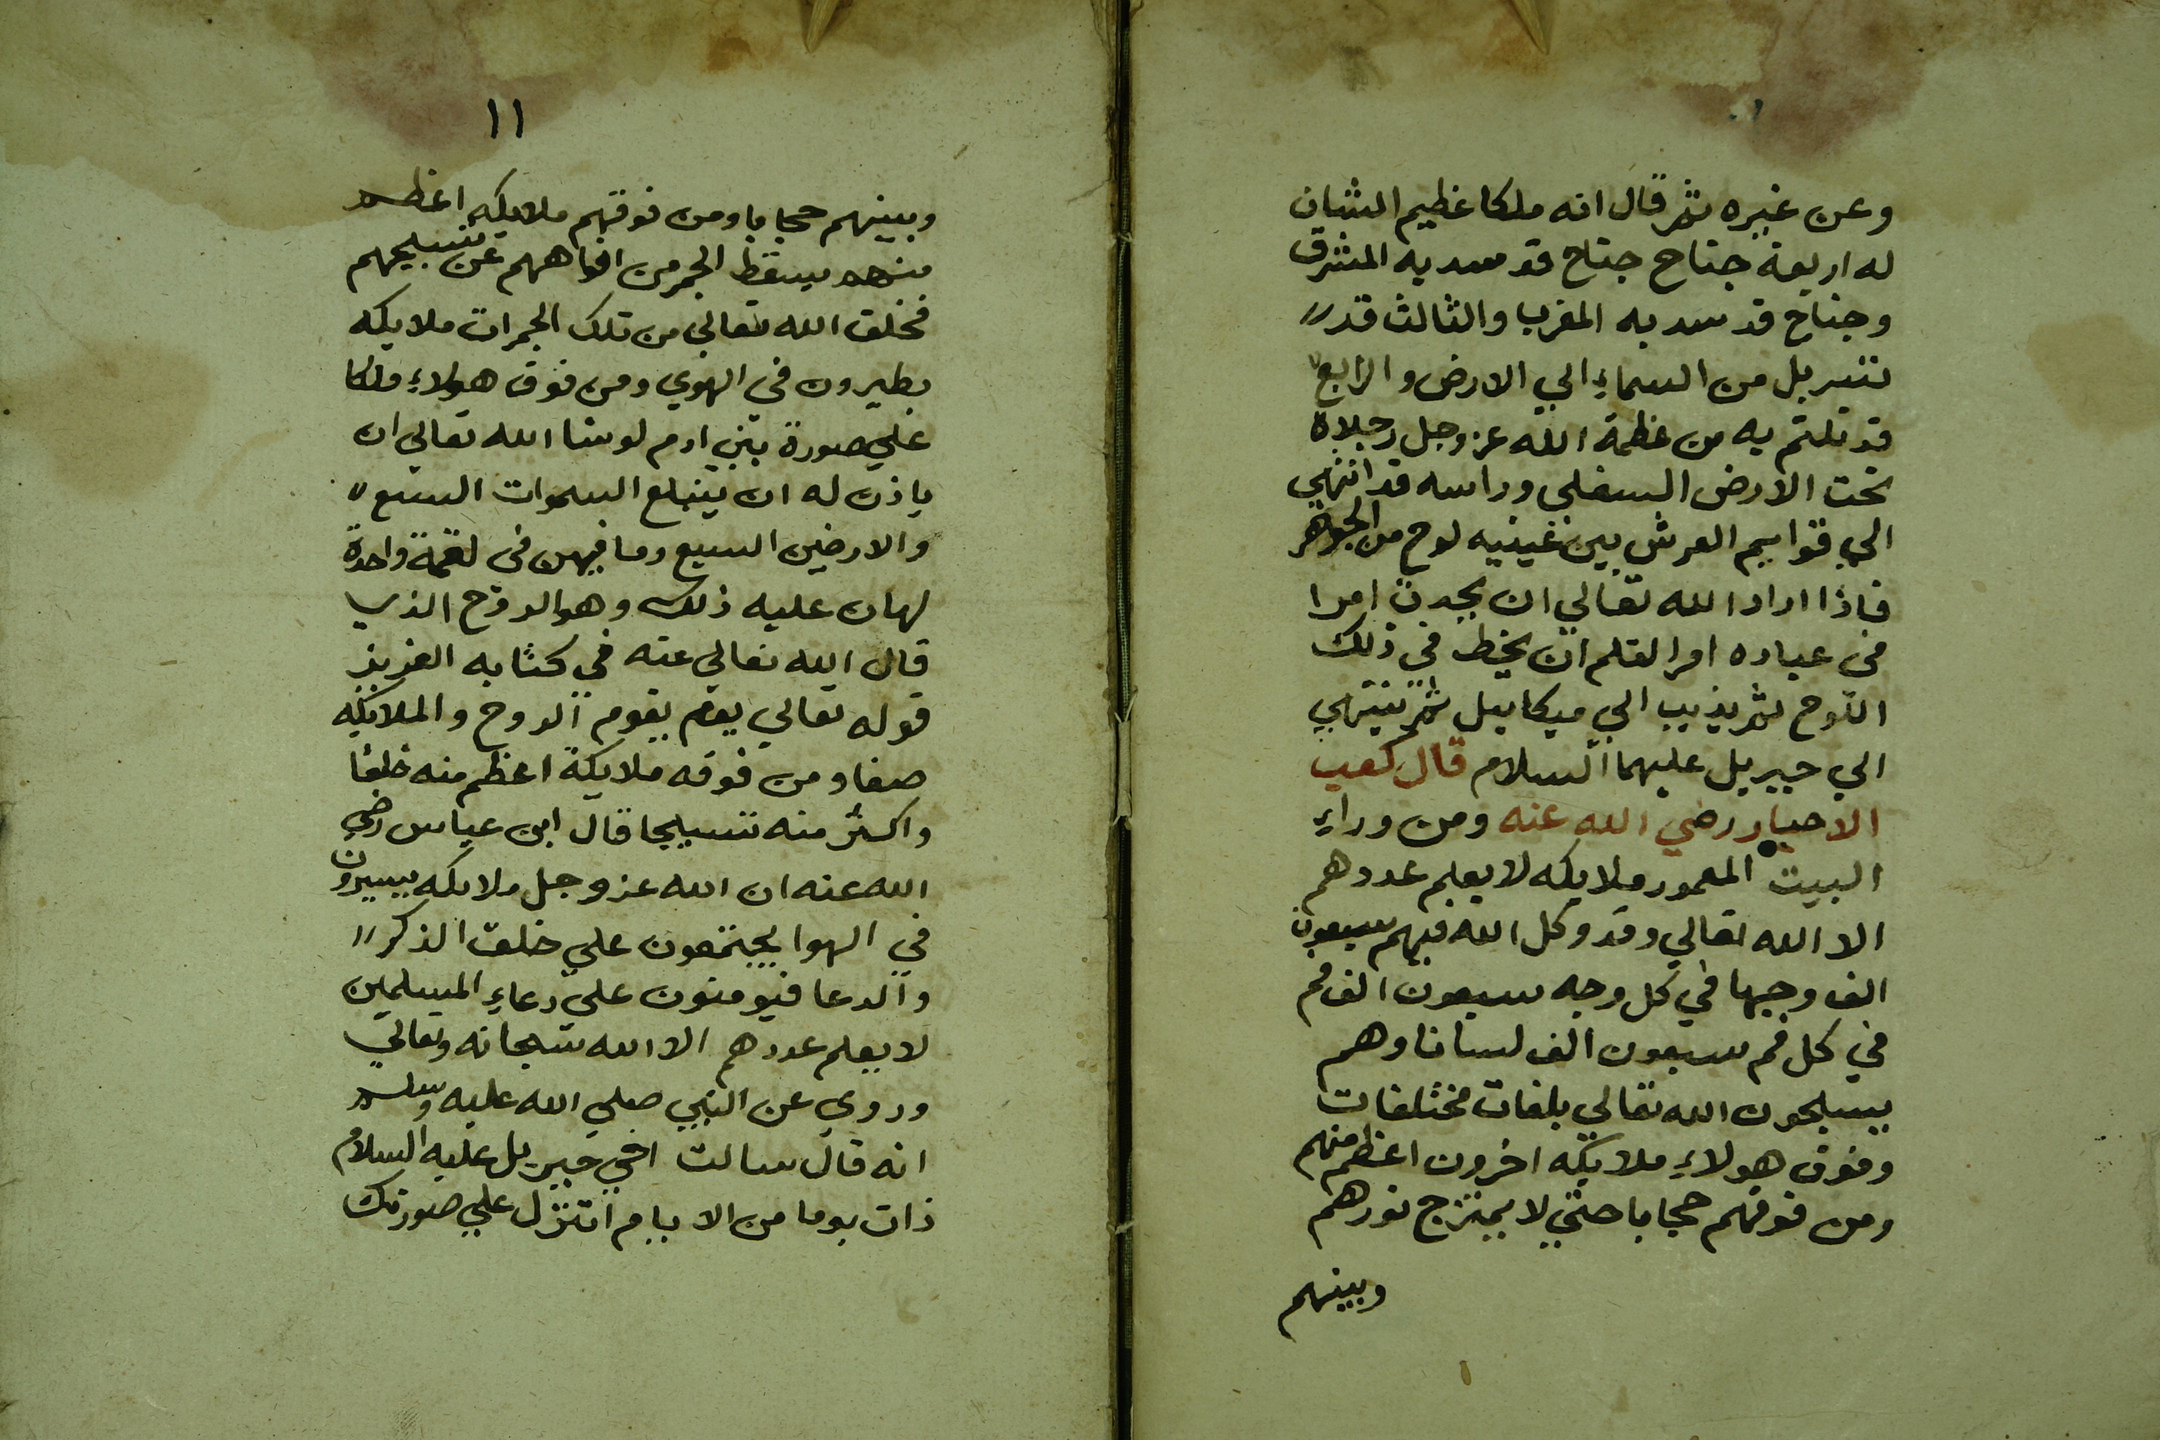 وعن غيره ثم قال انه ملكا عظيم الشان
له اربعة جناح جناح قد سد به المشرق
وجناح قد سد به المغرب والثالث قد
تسربل من السماء الي الارض والرابع
قد تلتم به من عظمة الله عز وجل رجلاه
تحت الارض السفلي وراسه قد انتهي
الي قوايم العرش بين عينيه لوح من الجوهر
فاذا اراد الله تعالي ان يحدث امرا
في عباده امر القلم ان يخط في ذلك
اللوح ثم يذيب الي ميكاييل ثم ينتهي
الي جبريل عليهما السلام قال كعب
الاحبار رضي الله عنه ومن وراء
البيت المعمور ملايكه لا يعلم عددهم
الا الله تعالي وقد وكل الله فيهم سبعون
الف وجها في كل وجه سبعون الف فم
في كل فم سبعون الف لسانا وهم
يسبحون الله تعالي بلغات مختلفات
وفوق هولاء ملايكه اخرون اعظم منهم
ومن فوقهم حجابا حتي لا يمتزج نورهم
وبينهم
١١
وبينهم حجابا ومن فوقهم ملايكه اعظم
منهم يسقط الجمر من افواههم عن تسبيحهم
فخلق الله تعالي من تلك الجمرات ملايكه
يطيرون في الهوي ومن فوق هولاء ملكا
علي صورة بني ادم لو شا الله تعالي ان
ياذن له ان يبتلع السموات السبع
والارضين السبع وما فيهن في لقمة واحدة
لهان عليه ذلك وهو الروح الذي
قال الله تعالي عنه في كتابه العزيز
قوله تعالي يوم يقوم الروح والملايكه
صفا ومن فوقه ملايكة اعظم منه خلقا
واكثر منه تسبيحا قال ابن عباس رضي
الله عنه ان الله عز وجل ملايكه يسيرون
في الهوا يجتمعون علي خلق الذكر
والدعا فيومنون علي دعاء المسلمين
لا يعلم عددهم الا الله سبحانه وتعالي
وروي عن النبي صلي الله عليه وسلم
انه قال سالت اخي جبريل عليه السلام
ذات يوما من الايام اتنزل علي صورتك